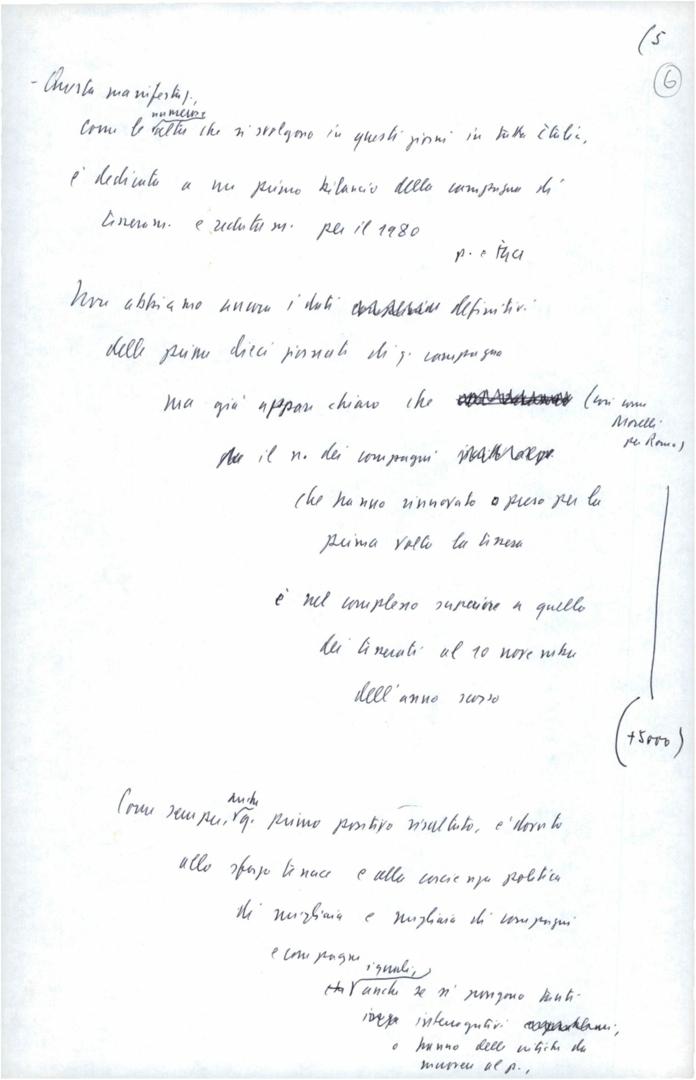 (5
6
- Questa manifestaz.,
numerose
come le altre che si svolgono in questi giorni in tutta Italia,
è dedicata a un primo bilancio della campagna di
tesseram. e reclutam. per il 1980
p. e
Non abbiamo ancora i dati definitivi
delle prime dieci giornate di q. campagna
ma già appare chiaro che (così come
Morelli
per Roma)
il n. dei compagni
che hanno rinnovato o preso per la
prima volta la tessera
è nel complesso superiore a quello
dei tesserati al 10 novembre
dell'anno scorso
(+5000)
anche
Come sempre, q. primo positivo risultato, è dovuto
allo sforzo tenace e alla coscienza politica
di migliaia e migliaia di compagni
e compagne
i quali,
anche se si pongono tanti
interrogativi
o hanno delle critiche da
muovere al p.,